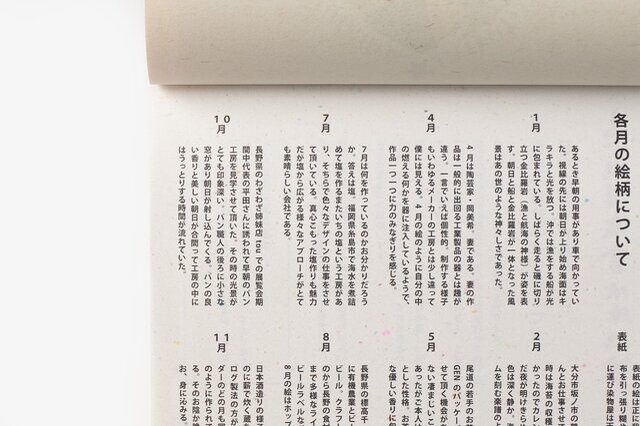 各月の絵柄について
1月
あるとき早朝の用事があり車で向かってい
た。視線の先には朝日が上り始め海面はキ
ラキラと光を放つ。沖では漁をする船が光
に包まれている。しばらく走ると磯に切り
立つ金比羅岩(漁と航海の神様)が姿を表
す。朝日と船と金比羅岩が一体となった風
景はあの世のような神々しさであった。
4月
4月は陶芸家・岡美希。妻である。妻の作
品は一般的に出回る工業製品の器とは趣が
違う。一言でいえば個性的。制作する様子
もいわゆるメーカーの工房とは少し違って
僕には見える。4月の絵のように自分の中
の燃える何かを器に注入しているようで、
作品一つ一つに力のみなぎりを感じる。
7月
7月は何を作っているのかお分かりだろう
か。答えは塩。福岡県糸島市で海水を煮詰
めて塩を作るまたいちの塩という工房があ
り、そちらで色々なデザインの仕事をさせ
て頂いている。真心こもった塩作りも魅力
だが塩から広がる様々なアプローチがとて
も素晴らしい会社である。
10月
長野県のわざわざ姉妹店 tou での展覧会期
間中代表の平田さんに誘われて早朝のパン
工房を見学させて頂いた。その時の光景が
とても印象深い。パン職人の後ろに小さな
窓があり朝日が射し込んでくる。パンの良
い香りと美しい朝日が合間って工房の中に
はうっとりする時間が流れていた。
表紙
表紙の絵は正に
布を引っ張り糊や
に運び染物屋は天
2月
大分市坂ノ市の
んとお仕事させて
時は海苔の収穫
かったのでカレ
だ夜が明けきら
色は深く静か。海
ムを刻む楽譜のよ
5月
尾道の若手のお
GEN のパッケー
せて頂く機会が
ない凄まじいこ
あったがご本人
とした性格。お
な優しい香りに
8月
長野県の標高千
に有機農業とビ
ビール、クラフ
のから長野の食
まで多様なライ
ビールラベルな
8月の絵はホッ
11月
日本酒造りの様
のに薪で炊く蔵
ログ製法の方が
ダーのどの月も
のように作られ
る。そのお陰か
お、身に沁みる。